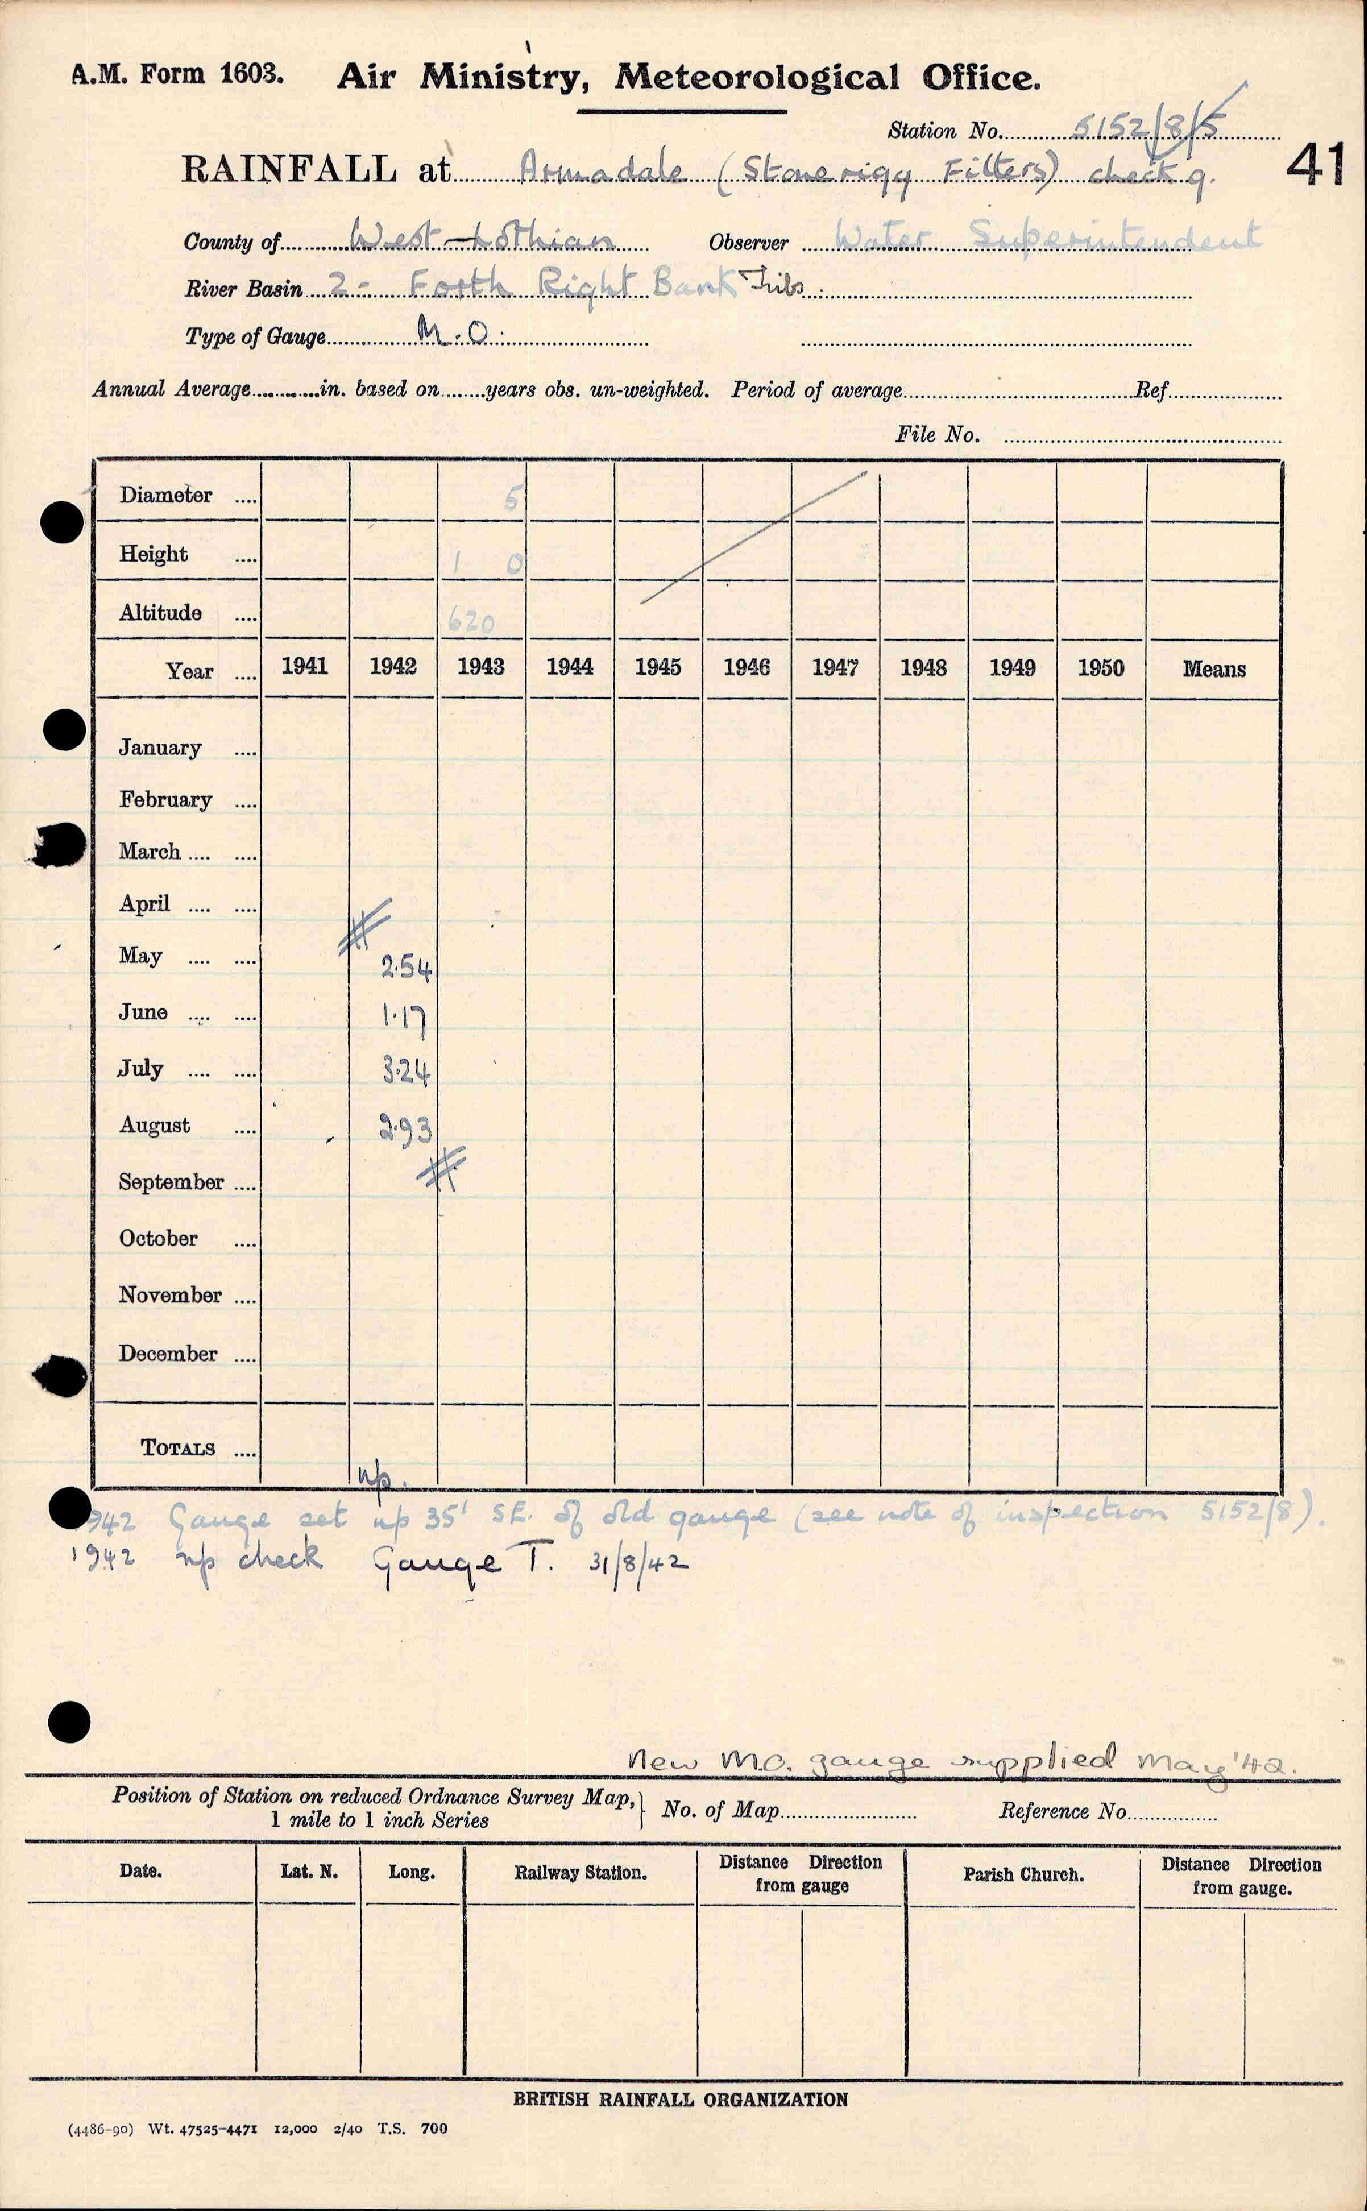 A.M. Form 1603. Air Ministry, Meteorological Office.
Station No. 5152/8/5
RAINFALL at Armadale (Stonerigg Filters) check g. 41
County of West Lothian Observer Water Superintendent
River Basin 2- Forth Right Bank Tribs.
Type of Gauge M.O.
Annual Average in. based on years obs. un-weighted. Period of average Ref.
File No.
Diameter 5
Height 1 0
Altitude 620
Year 1941 1942 1943 1944 1945 1946 1947 1948 1949 1950 Means
January
February
March
April
May 2.54
June 1.17
July 3.24
August 2.93
September
October
November
December
TOTALS np.
1942 Gauge set up 35' SE. of old gauge (see note of inspection 5152/8).
1942 np check Gauge T. 31/8/42
New M.O. gauge supplied May '42.
Position of Station on reduced Ordnance Survey Map, 1 mile to 1 inch Series } No. of Map Reference No.
Date. Lat. N. Long. Railway Station. Distance Direction from gauge Parish Church. Distance Direction from gauge.
BRITISH RAINFALL ORGANIZATION
(4486-90) Wt. 47525-4471 12,000 2/40 T.S. 700